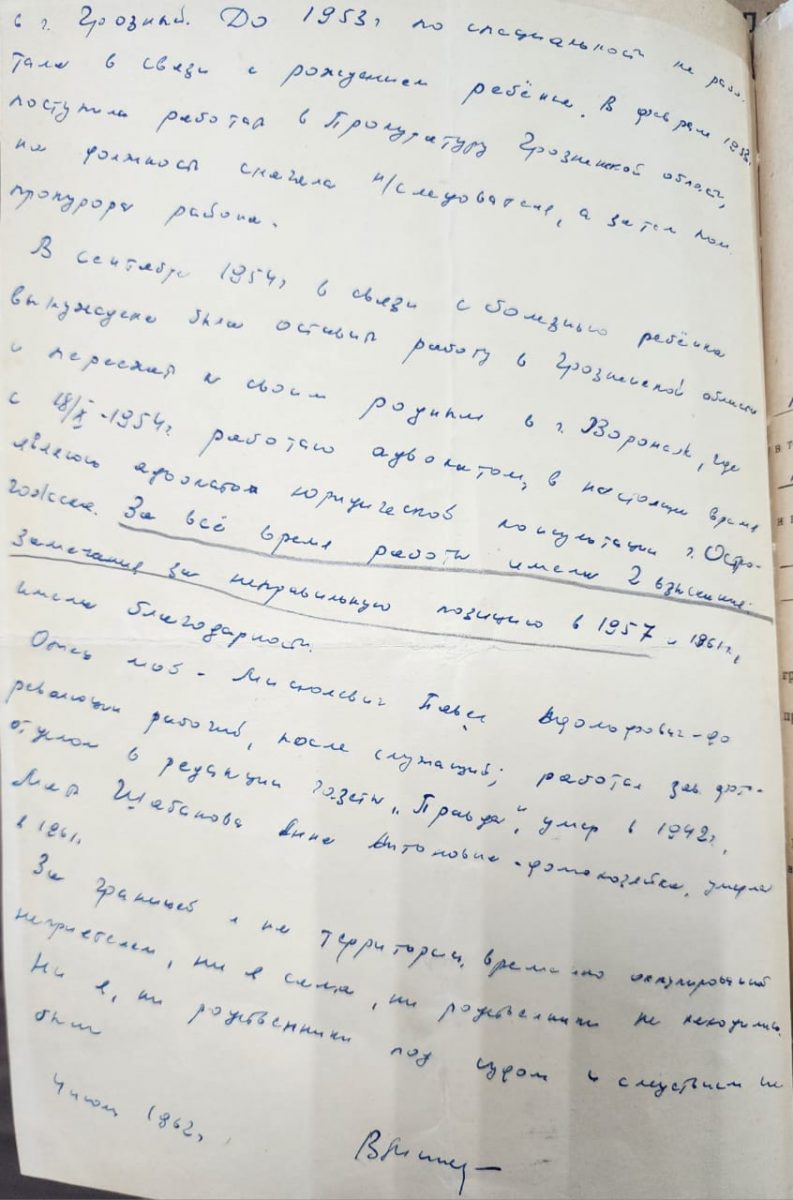 в г. Грозный. До 1953 г по специальности не рабо-
тала в связи с рождением ребёнка. В феврале 1953г.
поступила работать в Прокуратуру Грозненской области,
на должность сначала н/следователя, а затем пом.
прокурора района.
В сентябре 1954г в связи с болезнью ребёнка
вынуждена была оставить работу в Грозненской области
и переехать к своим родным в г. Воронеж, где
с 18/X-1954г. работаю адвокатом, в настоящее время
являюсь адвокатом юридической консультации г. Остро-
гожска. За всё время работы имела 2 взыскания.
Замечания за неправильную позицию в 1957 и 1961г.,
имела благодарности.
Отец мой - Павел Адольфович - до
революции рабочий, после служащий; работал зав. фото-
отделом в редакции газеты „Правда", умер в 1942г.,
Мать Шабанова Анна Антоновна - домохозяйка, умерла
в 1961.
За границей и на территории, временно оккупированной
неприятелем, ни я сама, ни родственники не находились.
Ни я, ни родственники под судом и следствием не
были
1962г.